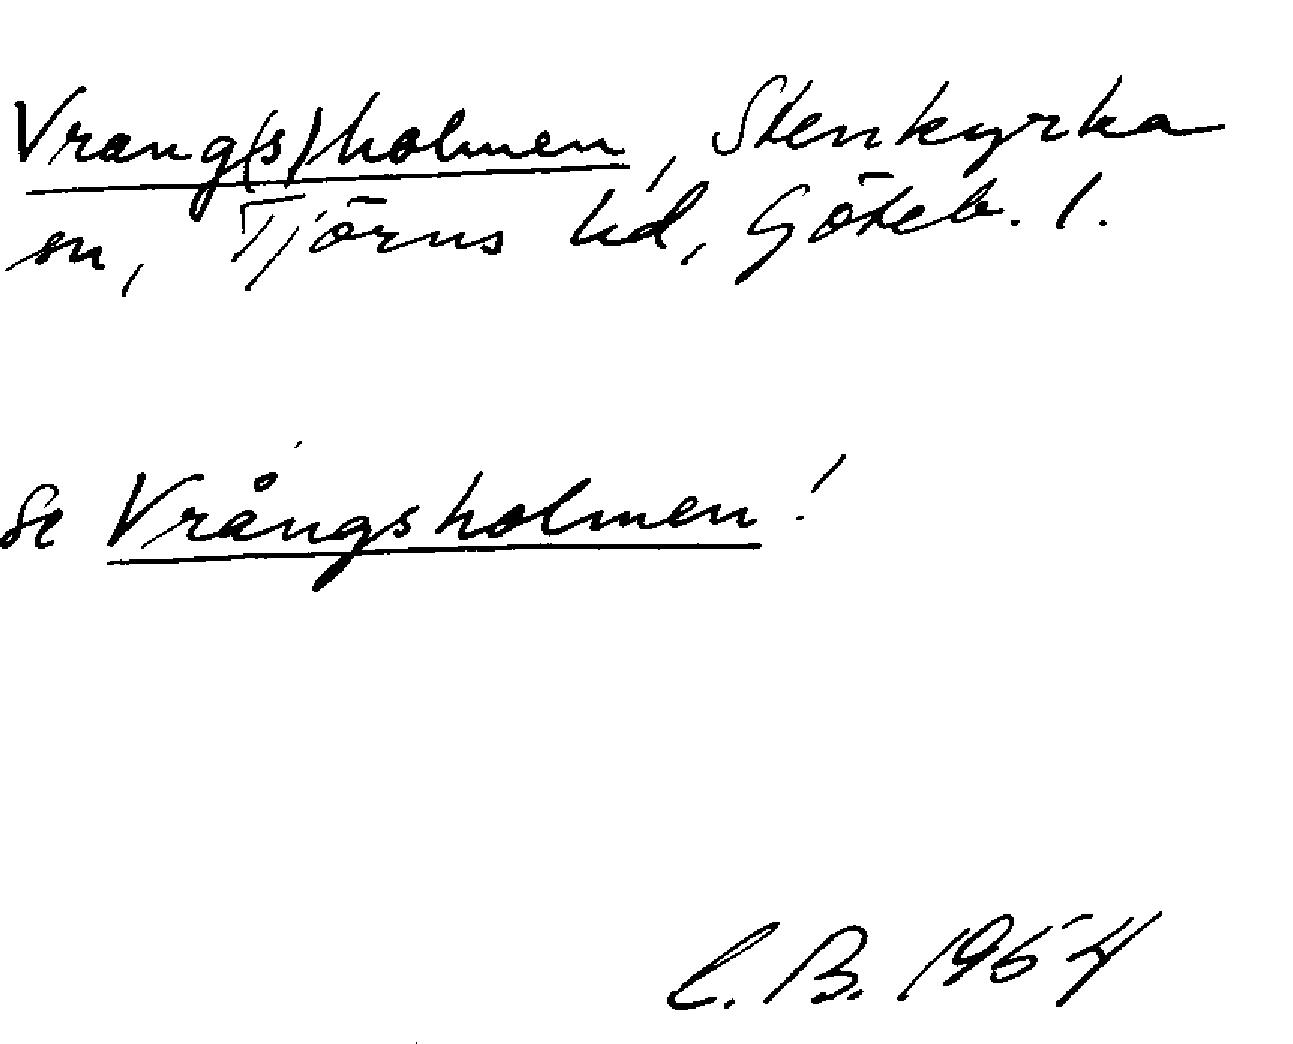 Vrang(s)holmen, Stenkyrka
sn, Tjörns hd, Göteb. l.
Se Vrångsholmen!
C. B. 1964